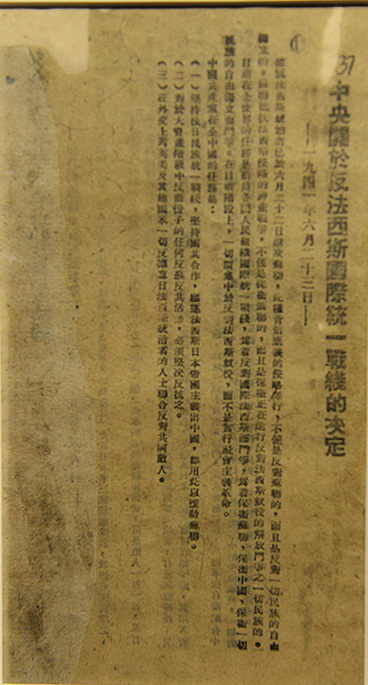 37
中央關於反法西斯國際統一戰綫的决定
——一九四一年六月二十三日——
德國法西斯統治者已於六月二十二日進攻蘇聯，此種背信棄義的侵略罪行，不僅是反對蘇聯的，而且是反對一切民族的自由
獨立的。蘇聯抵抗法西斯侵略的神聖戰爭，不僅是保衛蘇聯的，而且是保衛正在進行反對法西斯奴役的解放鬥爭之一切民族的。
目前在全世界的任務是動員各國人民組織國際統一戰綫，爲着反對國際法西斯而鬥爭，爲着保衛蘇聯，保衛中國，保衛一切
民族的自由獨立而鬥爭。在目前階段上，一切須集中於反對法西斯奴役，而不是實行社會主義革命。
中國共產黨在全中國的任務是：
（一）堅持抗日民族統一戰綫，堅持國共合作，驅逐法西斯日本帝國主義出中國，即用此以援助蘇聯。
（二）對於大資產階級中反動份子的任何反蘇反共活動，必須堅决反抗之。
（三）在外交上同英美及其他國家一切反對德意日法西斯統治者的人士聯合反對共同敵人。